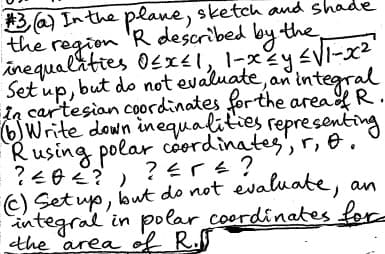 #3.(a) In the plane, sketch and shade
the region R described by the
inequalities 0≤x≤1, 1-x≤y≤√1-x²
Set up, but do not evaluate, an integral
in cartesian coordinates for the area of R.
(b) Write down inequalities representing
R using polar coordinates, r, θ.
? ≤ θ ≤ ? , ? ≤ r ≤ ?
(c) Set up, but do not evaluate, an
integral in polar coordinates for
the area of R.